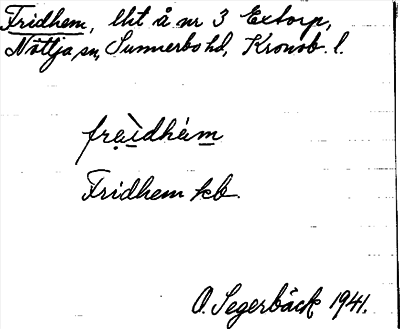 Fridhem, lht å nr 3 Extorp,
Nöttja sn, Sunnerbo hd, Kronob. l.
fra̤ìdhém
Fridhem kb
O. Segerbäck 1941.